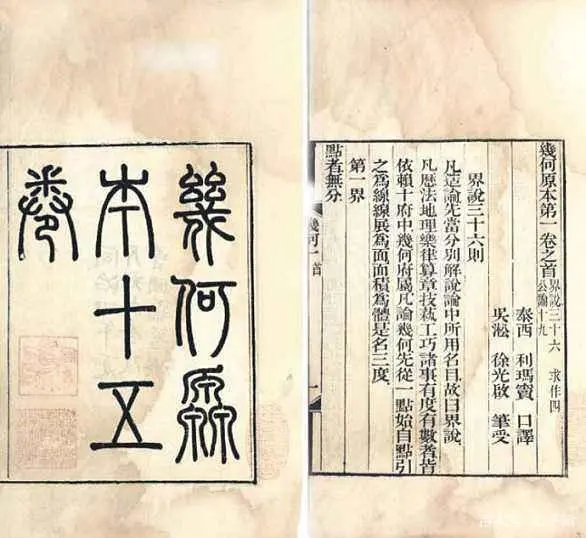 幾何原
本十五
卷
幾何原本第一卷之首 界說三十六 求作四 公論十九
泰西 利瑪竇 口譯
吳淞 徐光啟 筆受
界說三十六則
凡造論先當分別解說論中所用名目故曰界說
凡歷法地理樂律算章技藝工巧諸事有度有數者皆
依賴十府中幾何府屬凡論幾何先從一點始自點引
之為線線展為面面積為體是名三度
第一界
點者無分
幾何一 首